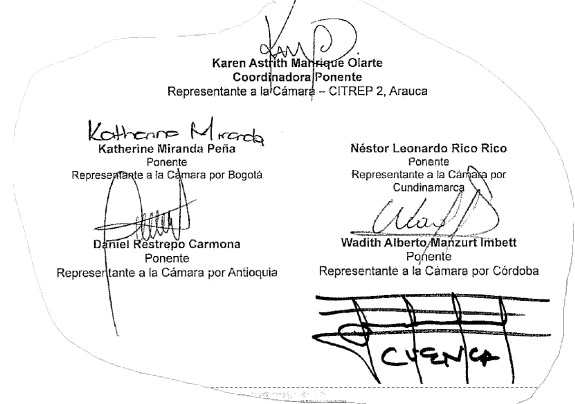 Karen Astrith Manrique Olarte
Coordinadora Ponente
Representante a la Cámara – CITREP 2, Arauca
Katherine Miranda
Katherine Miranda Peña
Ponente
Representante a la Cámara por Bogotá
Néstor Leonardo Rico Rico
Ponente
Representante a la Cámara por
Cundinamarca
Daniel Restrepo Carmona
Ponente
Representante a la Cámara por Antioquia
Wadith Alberto Manzurt Imbett
Ponente
Representante a la Cámara por Córdoba
CUENCA